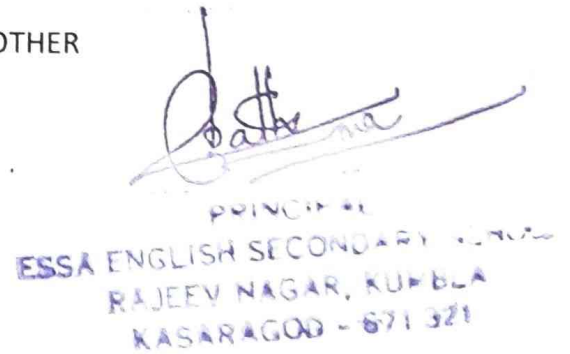 OTHER
PRINCIPAL
ESSA ENGLISH SECONDARY
RAJEEV NAGAR, KUMBLA
KASARAGOD - 671 321